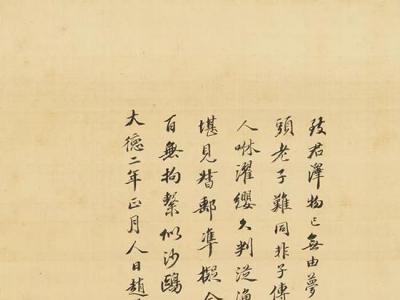 致君澤物已無由夢
頭老子難同非子傳
人咻濯纓久判從漁
堪見督郵準擬
百無拘繫似沙鷗
大德二年正月人日趙